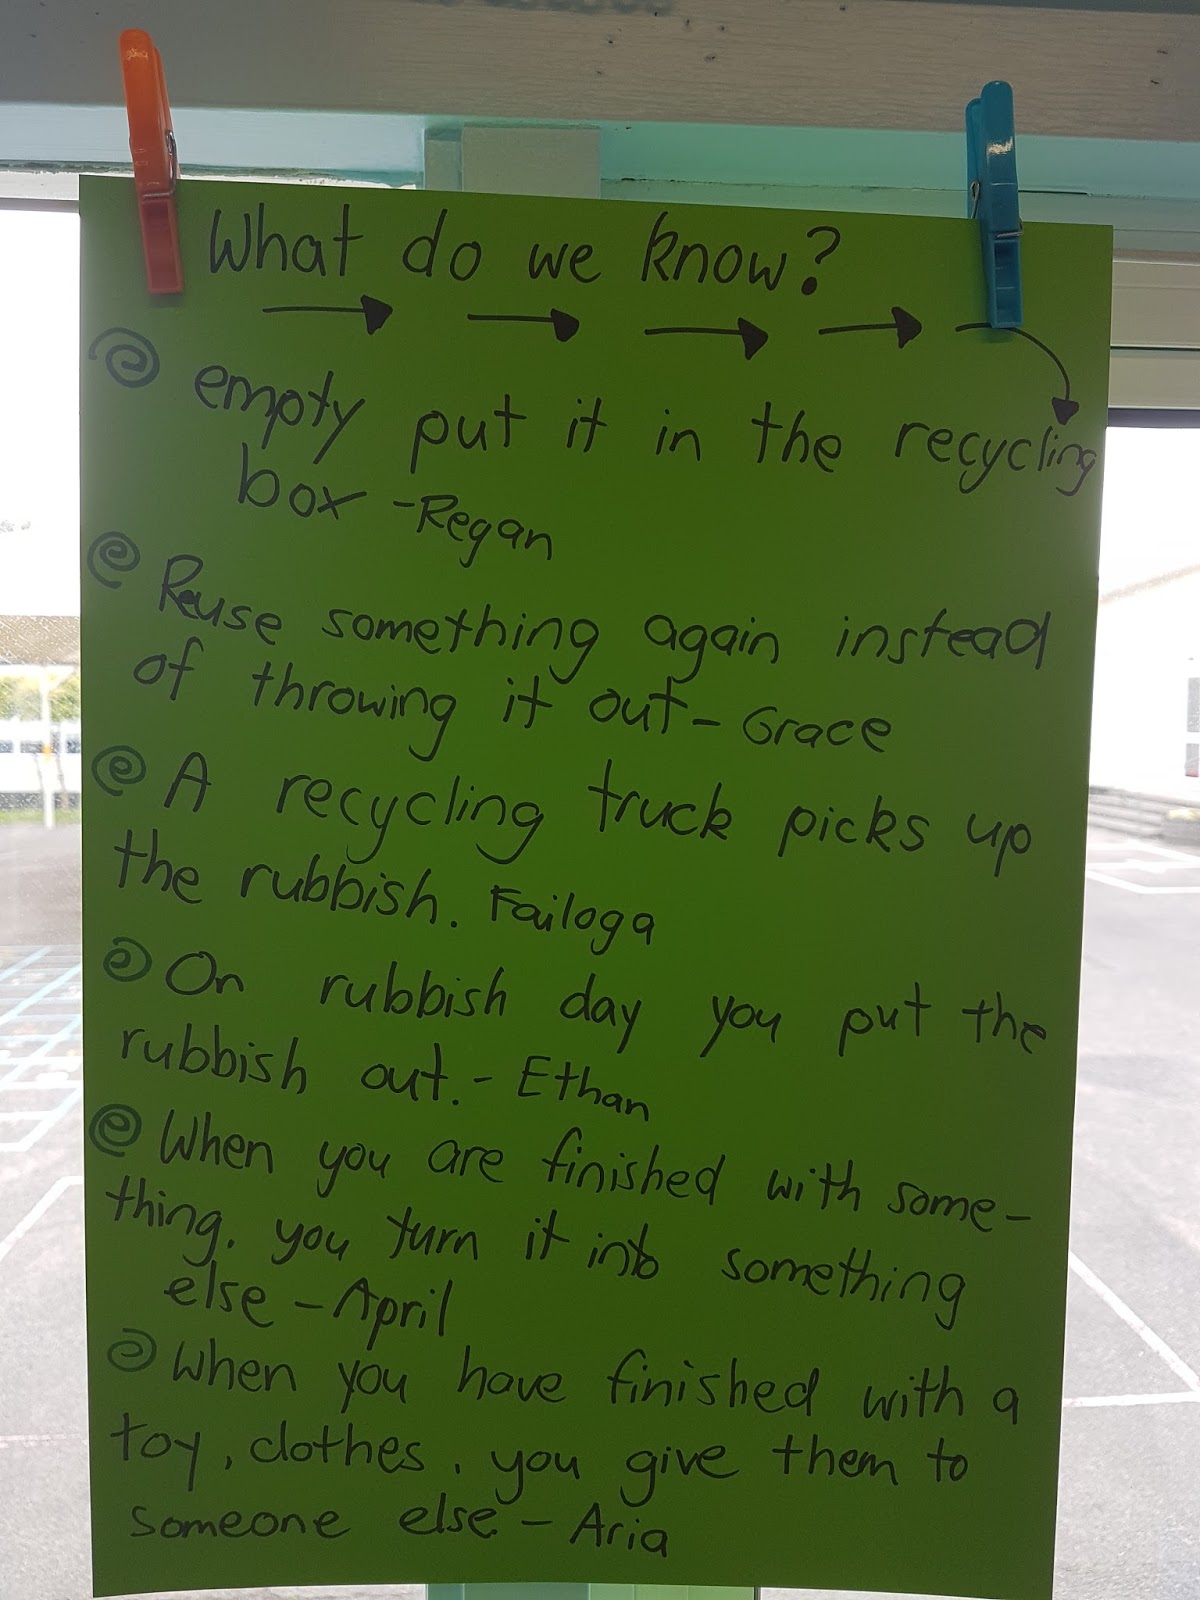 What do we know?
empty put it in the recycling
box - Regan
Reuse something again instead
of throwing it out - Grace
A recycling truck picks up
the rubbish. Failoga
On rubbish day you put the
rubbish out. - Ethan
When you are finished with some-
thing, you turn it into something
else - April
When you have finished with a
toy, clothes, you give them to
someone else - Aria